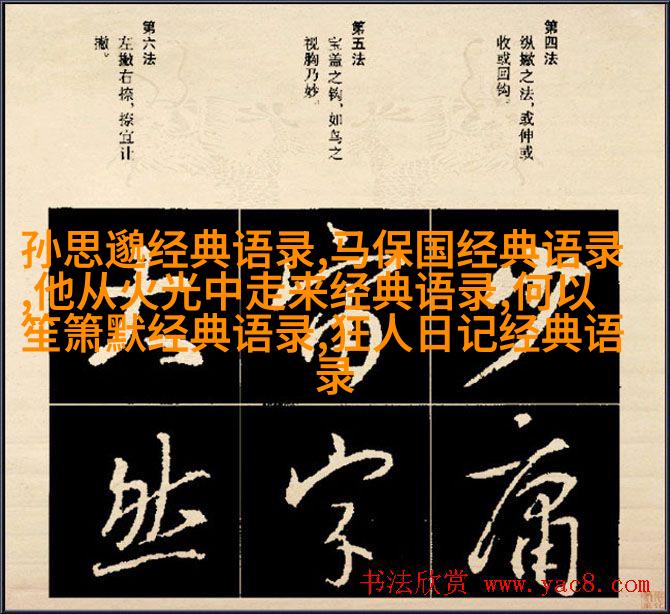 第四法
纵撇之法，或伸或
收或回钩。
第五法
宝盖之钩，如鸟之
视胸乃妙。
第六法
左撇右捺，捺宜让
撇。
孙思邈经典语录,马保国经典语录
,他从火光中走来经典语录,何以
笙箫默经典语录,狂人日记经典语
录
庸
字
然
书法欣赏 www.yac8.com